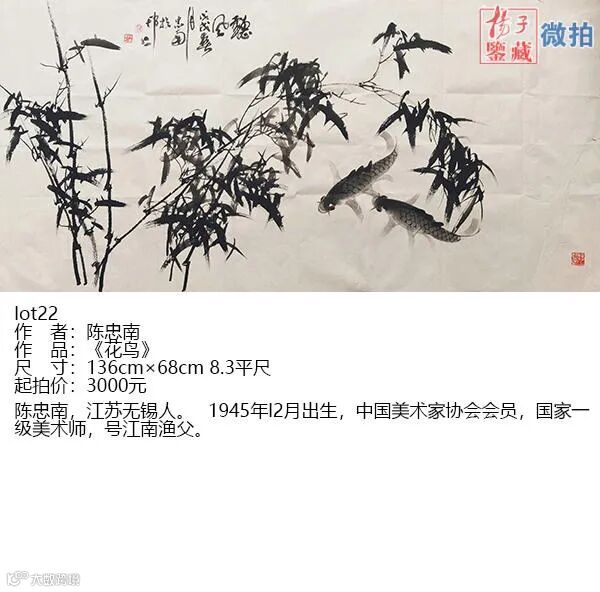 聽風
戊戌春月
忠南於
揚子
鑒藏
微拍
lot22
作 者：陈忠南
作 品：《花鸟》
尺 寸：136cm×68cm 8.3平尺
起拍价：3000元
陈忠南，江苏无锡人。 1945年l2月出生，中国美术家协会会员，国家一
级美术师，号江南渔父。